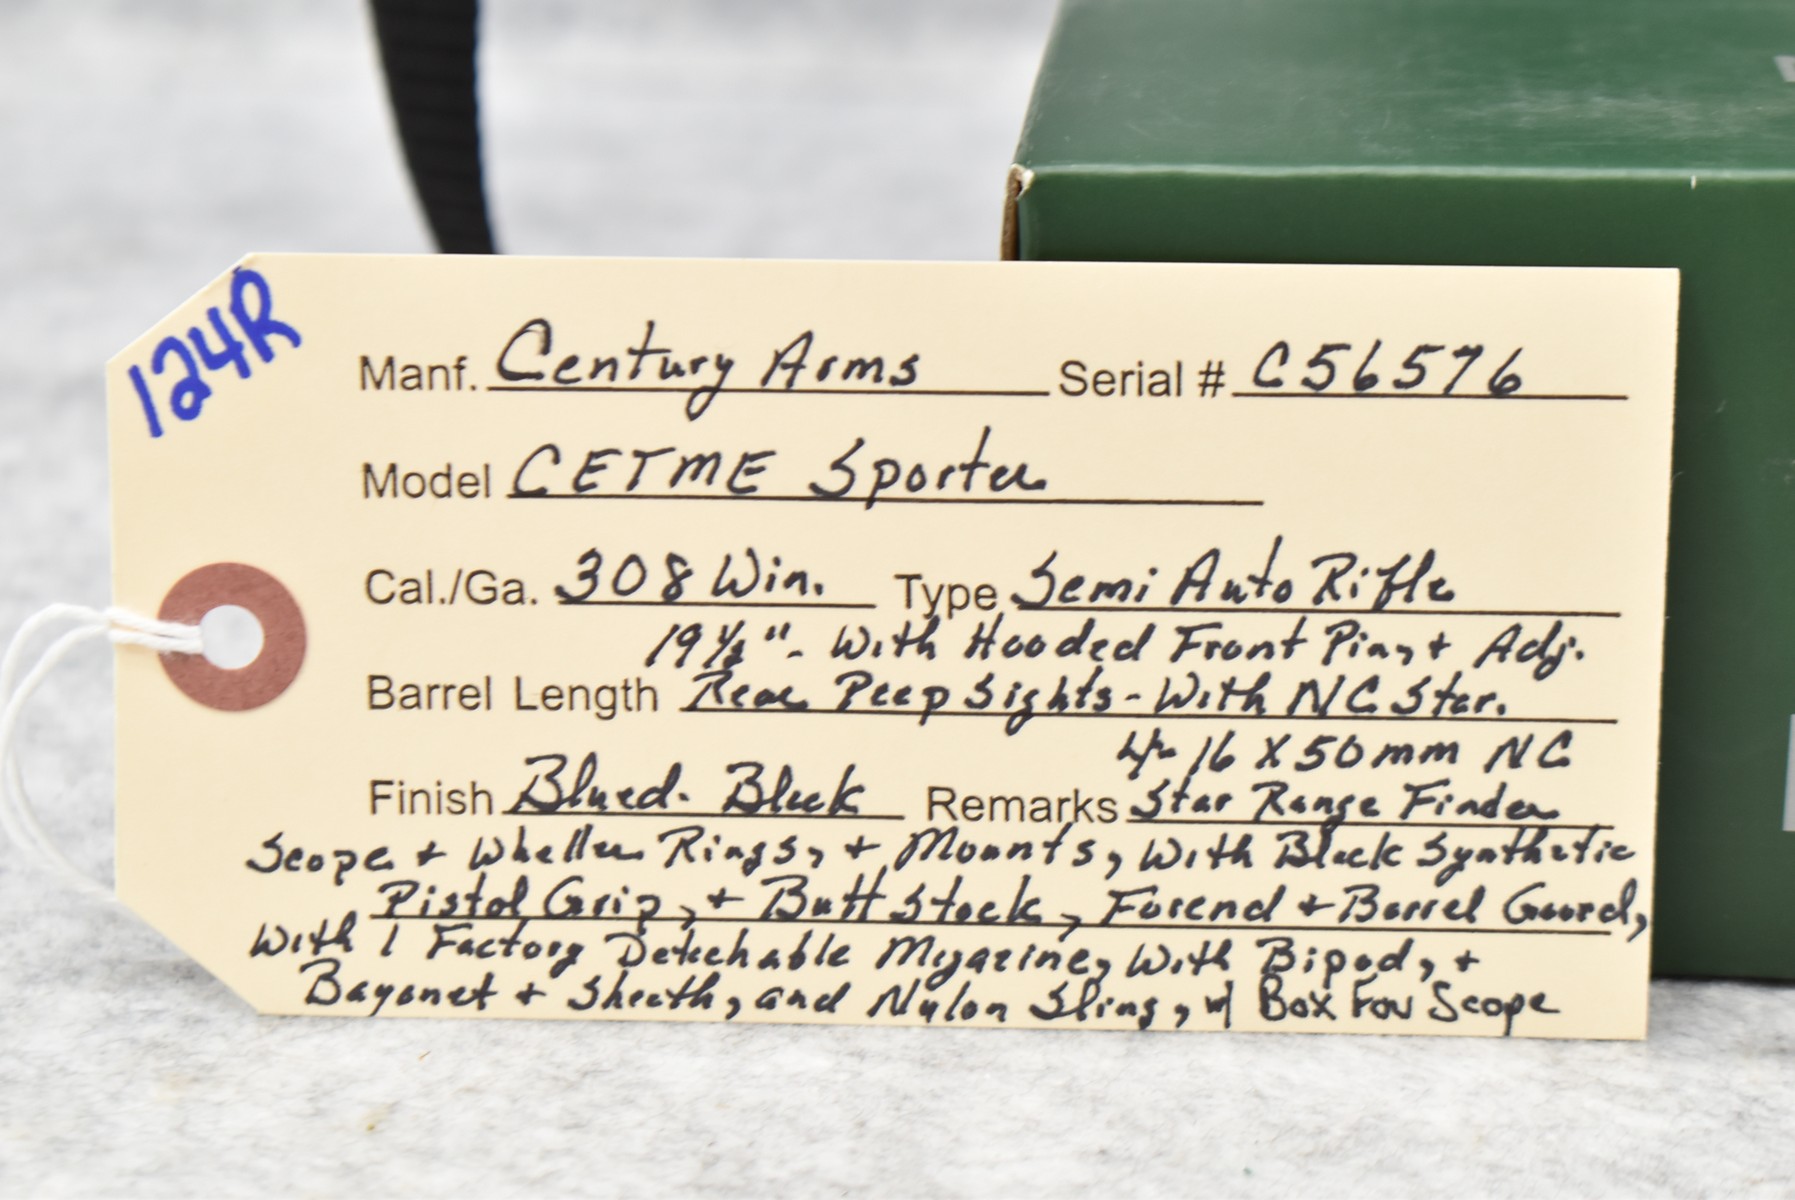 124R
Manf. Century Arms Serial # C56576
Model CETME Sporter
Cal./Ga. 308 Win. Type Semi Auto Rifle
19 1/2" - With Hooded Front Pin, + Adj.
Barrel Length Rear Peep Sights - With NC Star.
4 16 X 50mm NC
Finish Blued. Black Remarks Star Range Finder
Scope + Wheller Rings, + Mounts, With Black Synthetic
Pistol Grip, + Butt Stock, Forend + Barrel Guard,
With 1 Factory Detachable Magazine, With Bipod, +
Bayonet + Sheath, and Nylon Sling, w/ Box For Scope